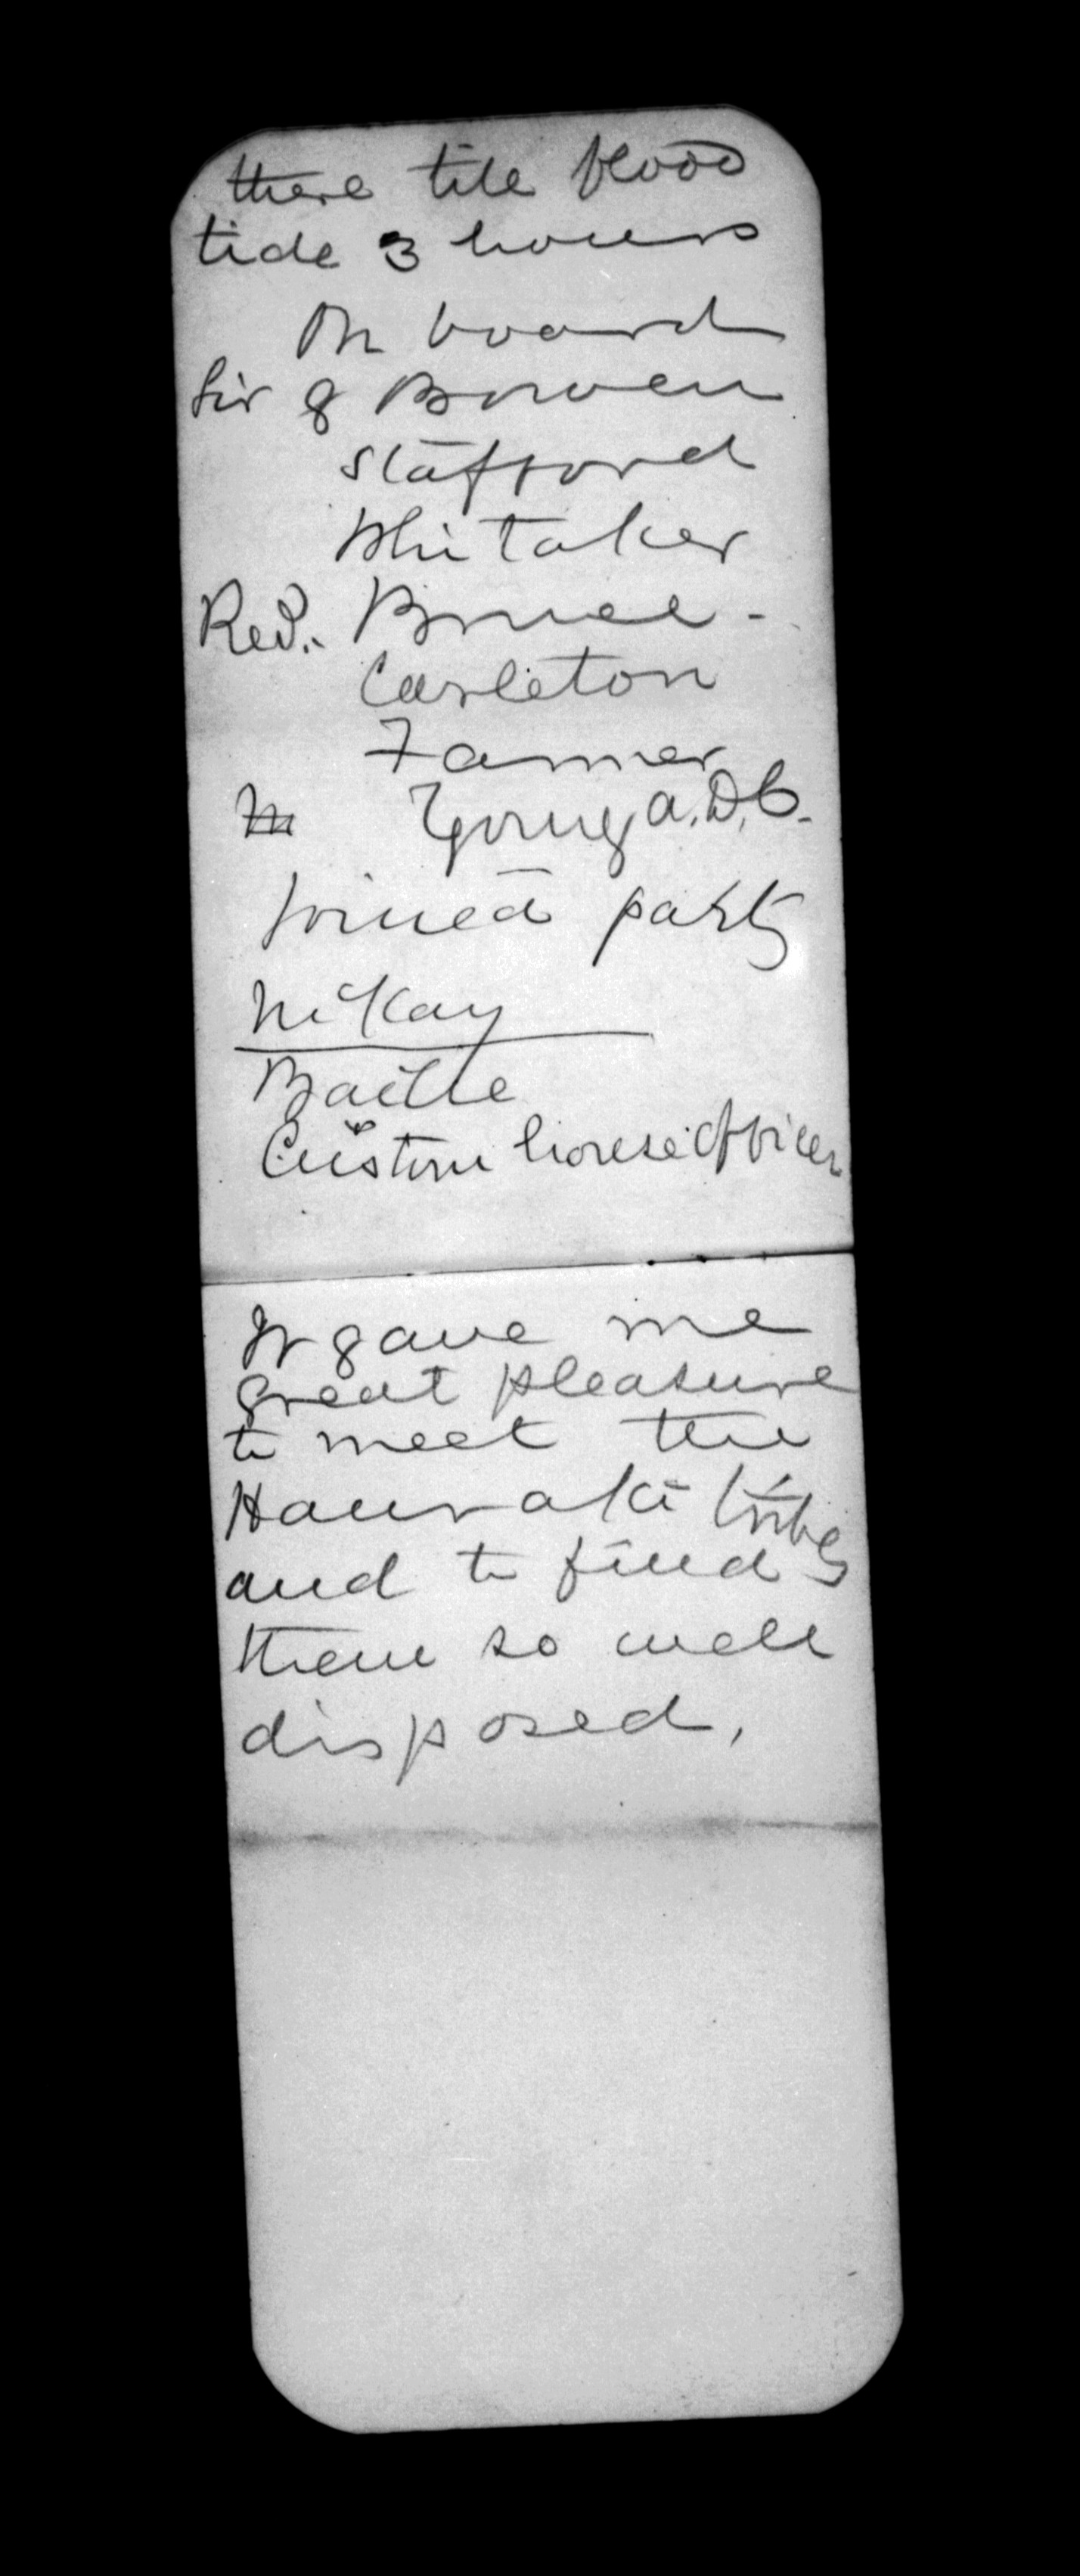 there till flood
tide 3 hours
On board
Sir G Bowen
Stafford
Whitaker
Red. Bruce -
Carleton
Farmer
Young A.D.C.
Joined party
McKay
Baillie
Custom house officer
It gave me
great pleasure
to meet the
Hauraki tribes
and to find
them so well
disposed.